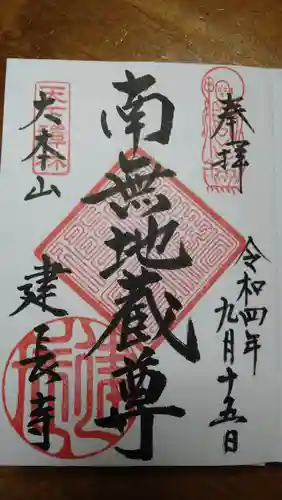 奉拝
令和四年
九月十五日
南無地蔵尊
大本山
建長寺